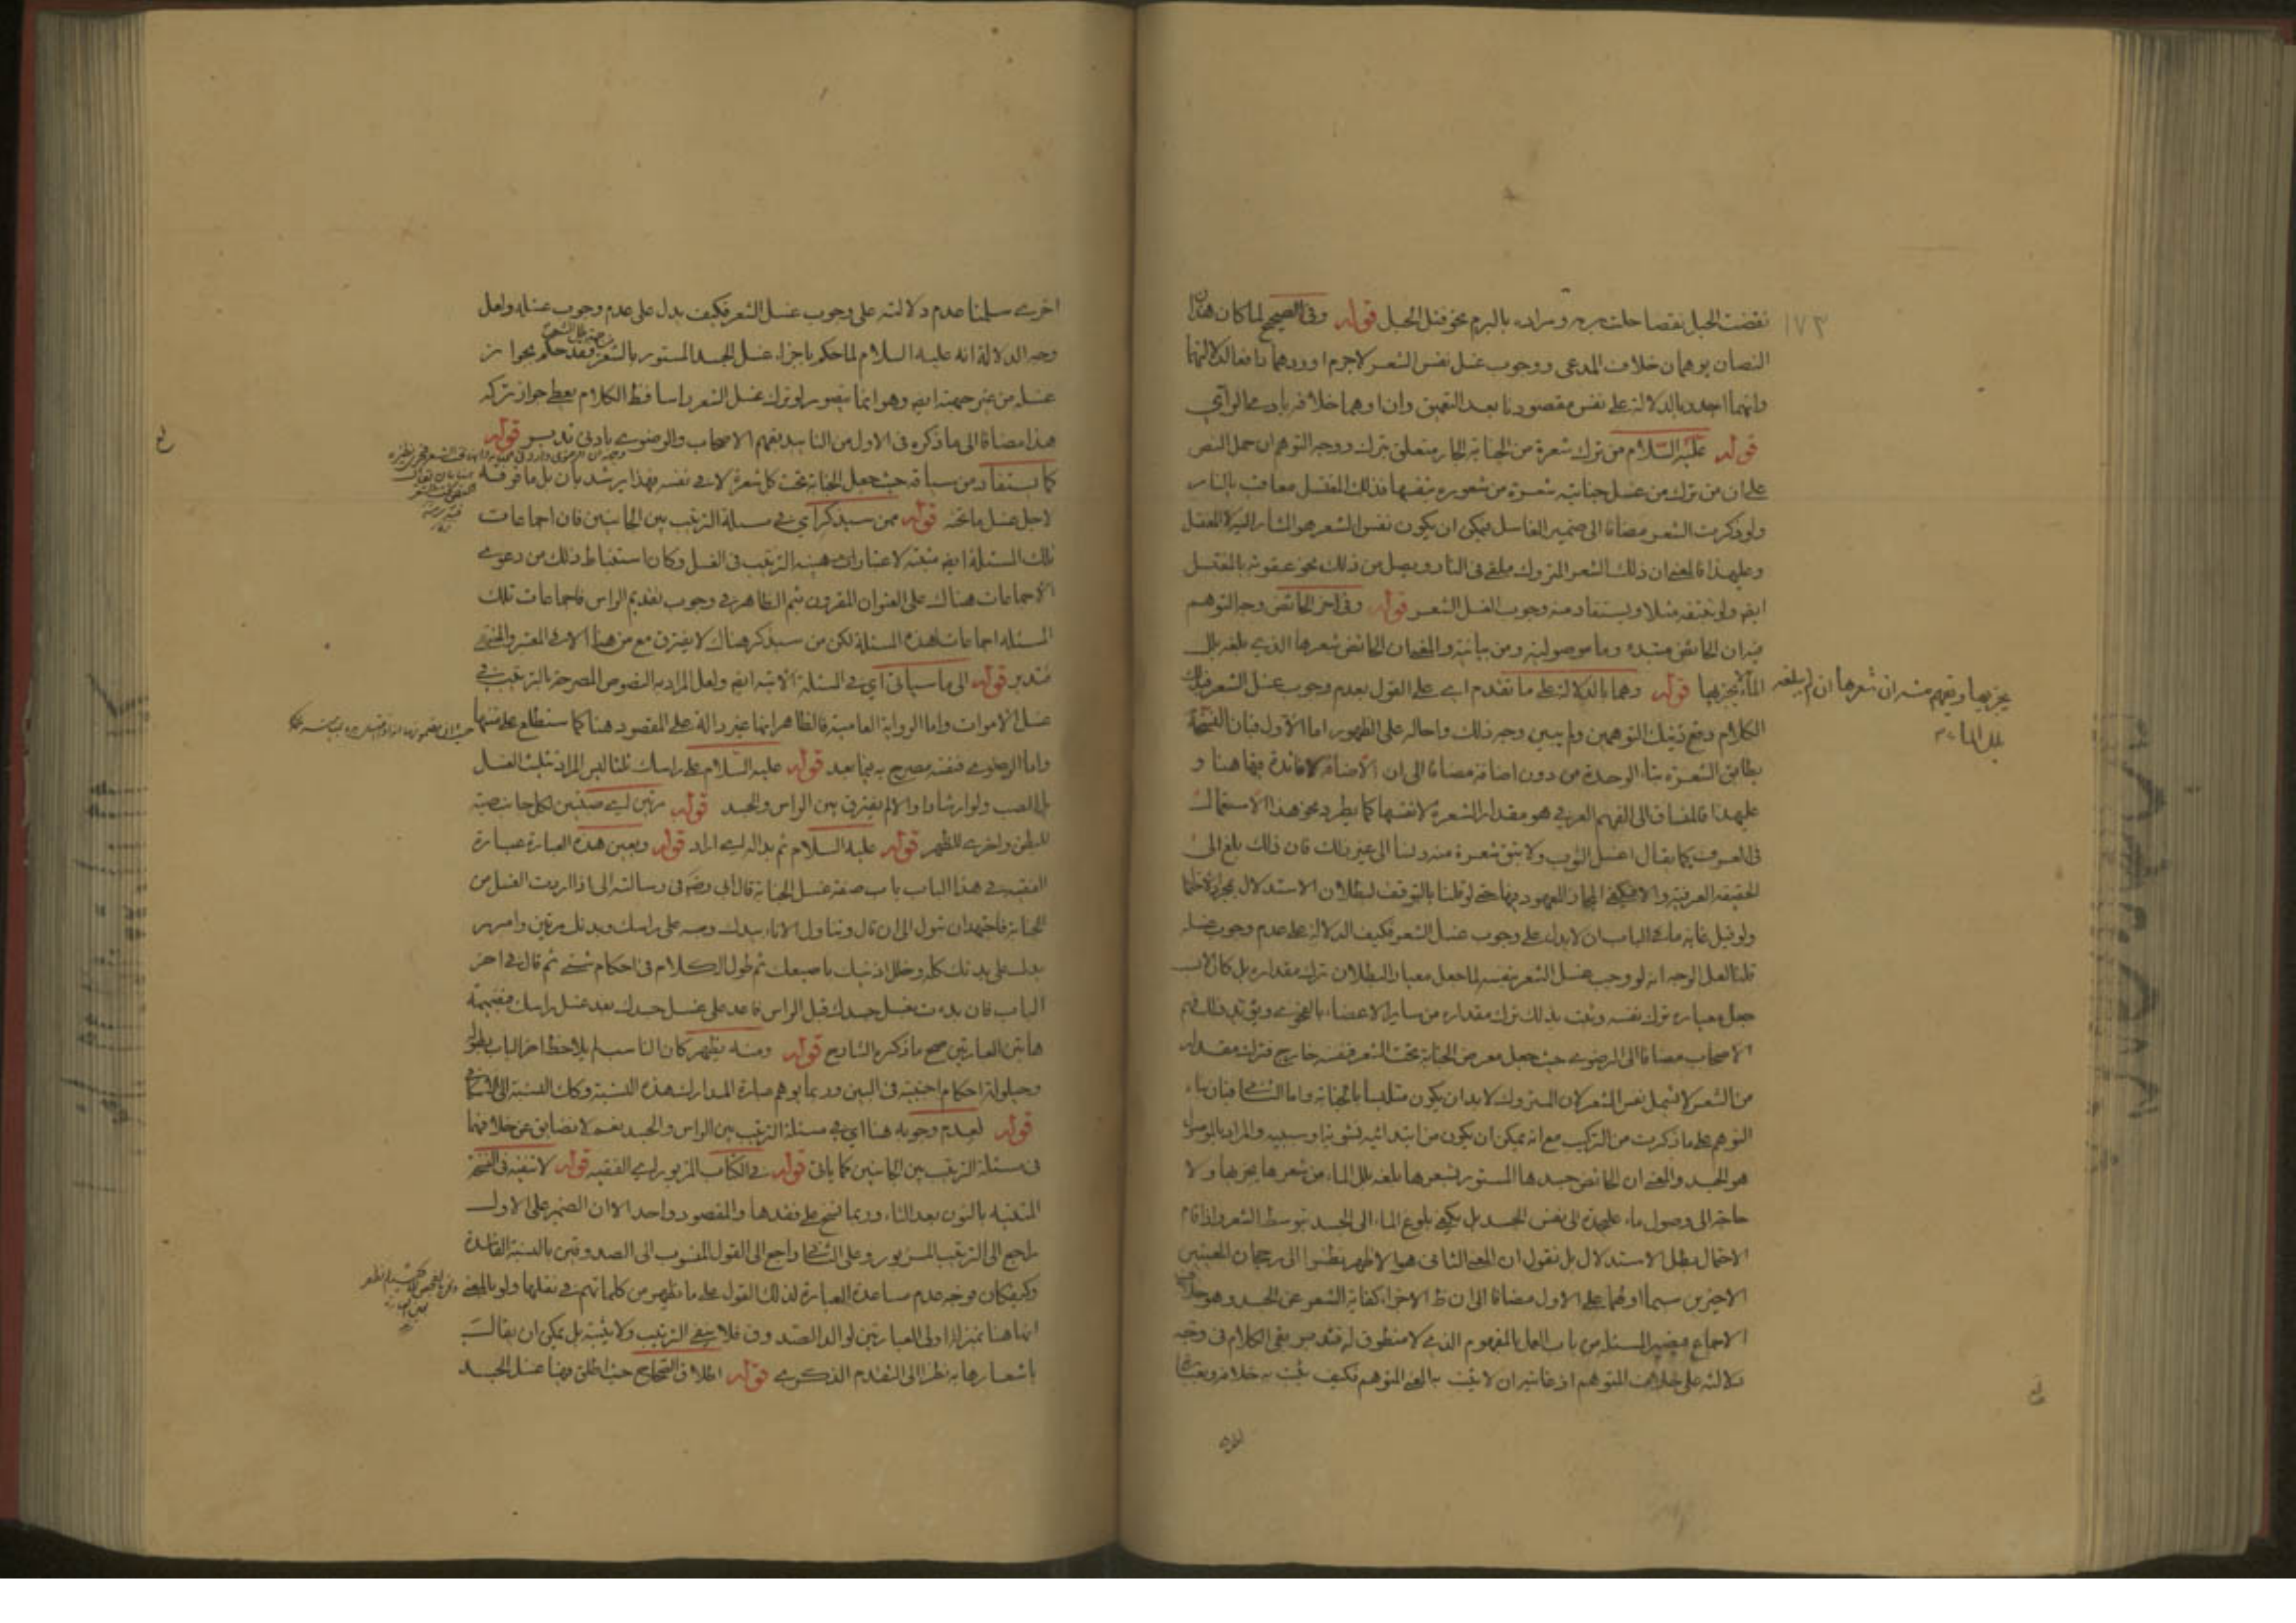 ١٧٣
نقضت الحبل نقضا حللت برمه ومراده بالبرم نحو فتل الحبل قوله وفى الصحيح لما كان هذان
النصان يوهمان خلاف المدعى ووجوب غسل نفس الشعر لاجرم اوردهما دافعا لدلالتهما
وانهما اجدر بالدلالة على نفس مقصودنا بعد التعمق وان اوهما خلافه بادى الراى
قوله عليه السلام من ترك شعرة من الجنابة الجار متعلق بترك ووجه التوهم ان حمل النص
على ان من ترك من غسل جنابته شعرة من شعوره بنفسها فذلك المغتسل معاقب بالنار
ولو ذكرت الشعر مضافا الى ضمير الغاسل فيمكن ان يكون نفس الشعر هو المشار اليه لا المغتسل
وعلى هذا فالمعنى ان ذلك الشعر المتروك ملقى فى النار ويصل من ذلك نحو عقوبة بالمغتسل
ايضا ولو بتبعه مثلا ويستفاد منه وجوب الغسل الشعر قوله وفى اخر الحائض وجه التوهم
فيه ان الحائض مبتدء وما موصولة ومن بيانية والمعنى ان الحائض شعرها الذى بلغه بلل
الماء يجزيها قوله وهما بالدلالة على ما تقدم اى على القول بعدم وجوب غسل الشعر
يجزيها ويفهم منه ان شعرها ان لم يبلغه
بلل الماء
الكلام دفع ذينك التوهمين ولم يبين وجه ذلك واحاله على الظهور اما الاول فبان
الشعرة بتاء الوحدة من دون اضافة مضافا الى ان الاضافة لا فائدة فيها هنا و
عليهذا فالمنساق الى الفهم العرفى هو مقدار الشعرة لا نفسها كما يطرد نحو هذا الاستعمال
فى العرف كما يقال اغسل الثوب ولا تبق شعرة منه دنسا الى غير ذلك فان ذلك بلغ الى
الحقيقة العرفية والا فيكفى المجاز المعهود فيها حتى لو قلنا بالتوقف لبطلان الاستدلال
ولو قيل غاية ما فى الباب ان لا يدل على وجوب غسل الشعر فكيف الدلالة على عدم وجوب غسله
قلنا لعل الوجه انه لو وجب غسل الشعر بنفسه لما جعل معيار البطلان ترك مقداره بل كان
جعل معياره ترك نفسه ويثبت بذلك ترك مقداره من ساير الاعضاء بالفحوى
الاصحاب مضافا الى الرضوى حيث جعل معرض الجنابة تحت الشعر فنفسه خارج فترك مقدار
من الشعر لا تشمل نفس الشعر لان المتروك لا بد ان يكون متلبسا بالجنابة واما الثانى فبان بناء
التوهم على ما ذكرت من التركيب مع انه يمكن ان يكون من ابتدائية نشوية او سببية والمراد بالموصول
هو الجسد والمعنى ان الحائض جسدها المستور بشعرها بلغه بلل الماء من شعرها يجزيها ولا
حاجة الى وصول ماء عليحدة الى نفس الجسد بل يكفى بلوغ الماء الى الجسد بتوسط الشعر واذا قام
الاحتمال بطل الاستدلال بل نقول ان المعنى الثانى هو الاظهر نظرا الى رجحان المعنيين
الاخيرين سيما اولهما على الاول مضافا الى ان ظ الاجزاء كفاية الشعر عن الجسد وهو خلاف
الاجماع فيصير المسئلة من باب العمل بالمفهوم الذى لا منطوق له فتدبر بقى الكلام فى وجه
دلالته على خلاف المتوهم اذ غايته ان لا يثبت به المعنى المتوهم فكيف يثبت به خلافه
اخرى سلمنا عدم دلالته على وجوب غسل الشعر فكيف يدل على عدم وجوب غسله ولعل
وجه الدلالة انه عليه السلام لما حكم باجزاء غسل الجسد المستور بالشعر فقد حكم بجواز
غسله من غير جهته ايضا وهو انما يتصور لو ترك غسل الشعر راسا فظ الكلام يعطى جواز تركه
هذا مضافا الى ما ذكره فى الاول من التاييد بفهم الاصحاب والرضوى بادنى تدبير قوله
كما يستفاد من سياقه حيث جعل الجنابة تحت كل شعرة لا فى نفسه فهذا يرشد بان بل ما فوقه
لاجل غسل ما تحته قوله ممن سيذكر اى فى مسئلة الترتيب بين الجانبين فان اجماعات
تلك المسئلة ايضا مثبتة لاعتبار هيئة الترتيب فى الغسل وكان استنباط ذلك من دعوى
الاجماعات هناك على العنوان المقرون بثم الظاهر فى وجوب تقديم الراس فاجماعات تلك
المسئلة اجماعات لهذه المسئلة لكن من سيذكر هناك لا يفترق مع من هنا الا فى المعتبر والمنتهى
فتدبر قوله الى ما سياتى اى فى المسئلة الاتية ايضا ولعل المراد به النصوص المصرحة بالترتيب فى
غسل الاموات واما الرواية العامية فالظاهر انها غير دالة على المقصود هنا كما ستطلع على متنها
واما الرضوى فنفسه مصرح به فيما بعد قوله عليه السلام على راسك ثلثا ليس المراد تثليث الغسل
بل الصب ولو ارشادا والا لم يفترق بين الراس والجسد قوله مرتين اى صبتين لكل جانب صبة
للبطن واخرى للظهر قوله عليه السلام ثم بدا له اى اراد قوله وبعين هذه العبارة عبارة
الفقيه فى هذا الباب باب صفة غسل الجنابة قال ابى رضى فى رسالته الى اذا اردت الغسل من
الجنابة فاجتهد ان تبول الى ان قال وتناول الاناء بيدك وصبه على راسك وبدنك مرتين وامرر
يدك على بدنك كله وخلل اذنيك باصبعك ثم طول الكلام فى احكام شتى ثم قال فى اخر
الباب فان بدءت بغسل جسدك قبل الراس فاعد على غسل جسدك بعد غسل راسك فبضميمة
هاتين العبارتين صح ما ذكره الشارح قوله ومنه يظهر كان المناسب لم يلاحظ اخر الباب
وحيلولة احكام اجنبية فى البين وربما يوهم عبارة المدارك هذه النسبة وكك النسبة
قوله لعدم وجوبه هنا اى فى مسئلة الترتيب بين الراس والجسد نعم لا نضايق عن خلافهما
فى مسئلة الترتيب بين الجانبين كما ياتى قوله فى الكتاب المزبور اى الفقيه قوله لا تنفيه فى النسخة
المثبتة بالنون بعد التاء وربما نسخ على فقدها والمقصود واحد الا ان الضمير على الاول
راجع الى الترتيب المزبور وعلى الثانى راجع الى القول المنسوب الى الصدوقين بالنسبة
وكيف كان فوجه عدم مساعدة العبارة لذلك القول على ما يظهر من كلماتهم فى نقلها ولو بالمعنى
انها هنا بمنزلة اولى العبارتين لوالد الصدوق فلا تنفى الترتيب ولا تثبته بل يمكن ان يقال
باشعارها به نظرا الى التقدم الذكرى قوله اطلاق الصحاح حيث اطلق فيها غسل الجسد